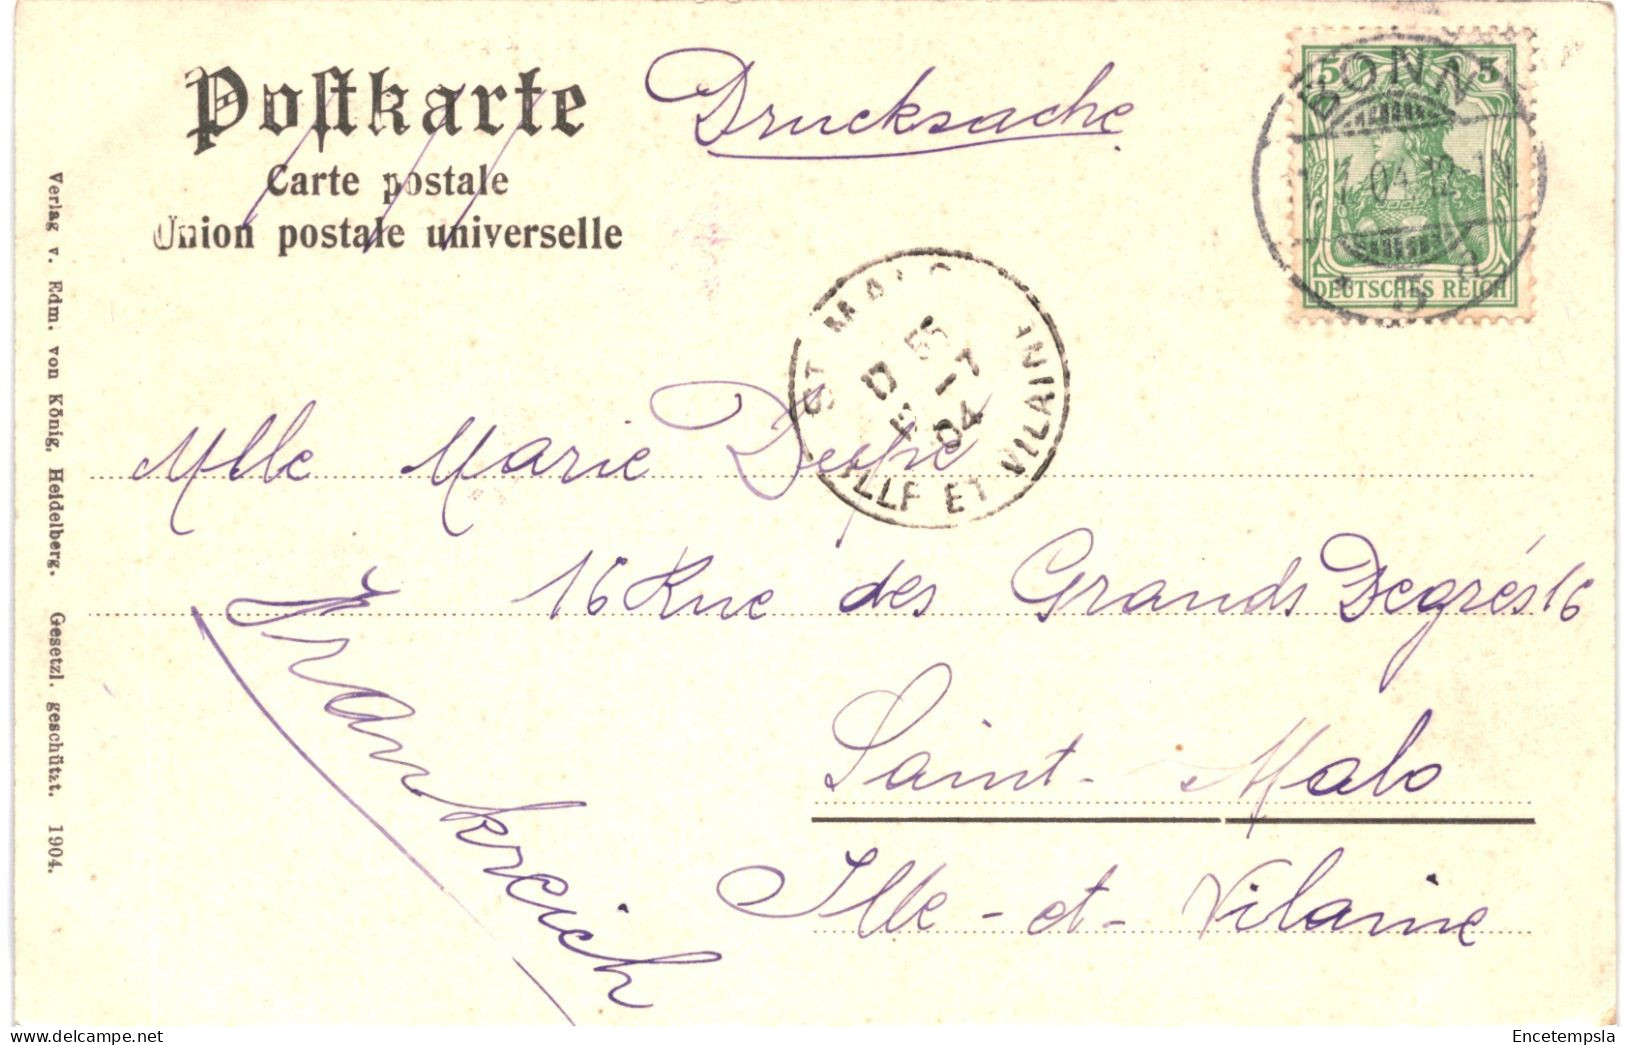 Postkarte
Carte postale
Union postale universelle
Drucksache
5 5
DEUTSCHES REICH
BONN
ST MALO
17
04
ILLE ET VILAINE
Mlle Marie
16 Rue des Grands Degrés 16
Saint-Malo
Ille-et-Vilaine
Frankreich
Verlag v. Edm. von König, Heidelberg. Gesetzl. geschützt. 1904.
Encetempsla